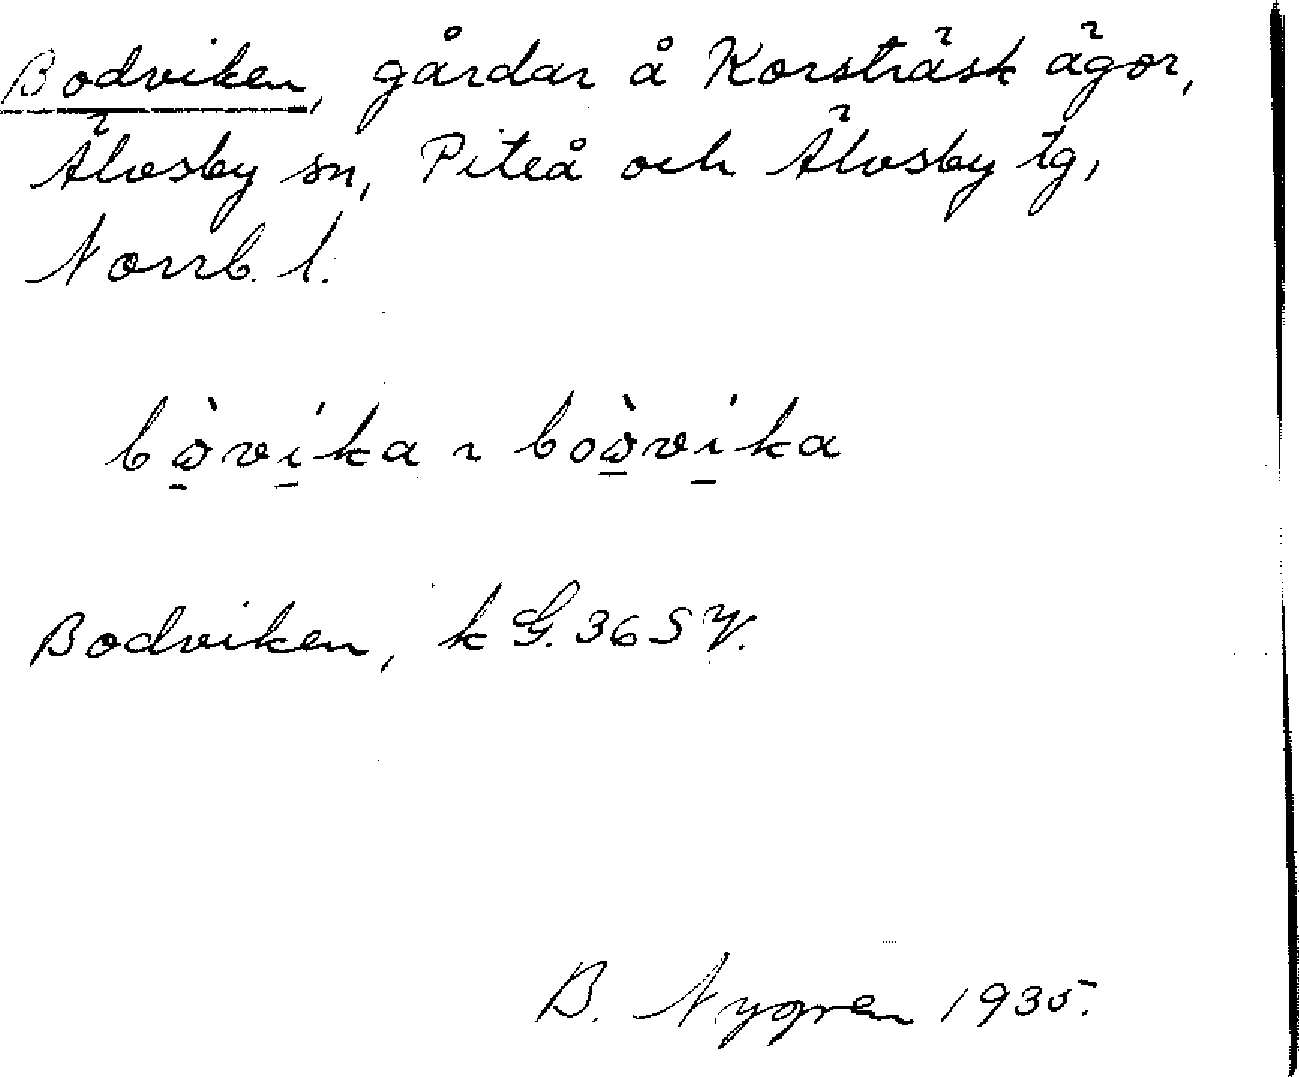 Bodviken, gårdar å Korsträsk ägor,
Älvsby sn, Piteå och Älvsby tg,
Norrb. l.
bò̱ví̱ka ~ boò̱ví̱ka
Bodviken, k G. 36 S V.
B. Nygren 1935.